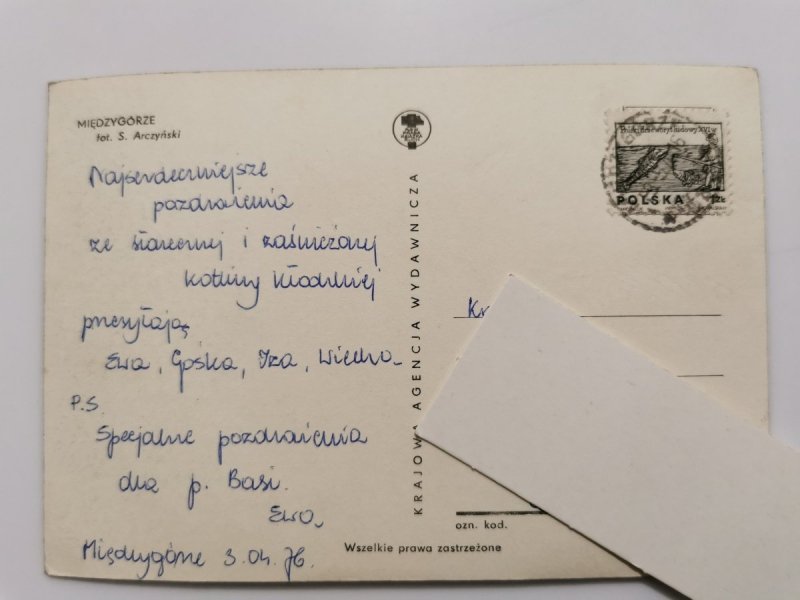 MIĘDZYGÓRZE
fot. S. Arczyński
Najserdeczniejsze
pozdrowienia
ze słonecznej i zaśnieżonej
Kotliny Kłodzkiej
przesyłają
Ewa, Gośka, Iza, Wiecha
P.S.
Specjalne pozdrowienia
dla p. Basi.
Ewa
Międzygórze 3.04.76.
KRAJOWA AGENCJA WYDAWNICZA
Wszelkie prawa zastrzeżone
Polski drzeworyt ludowy XVI w
POLSKA
Kr
ozn. kod.